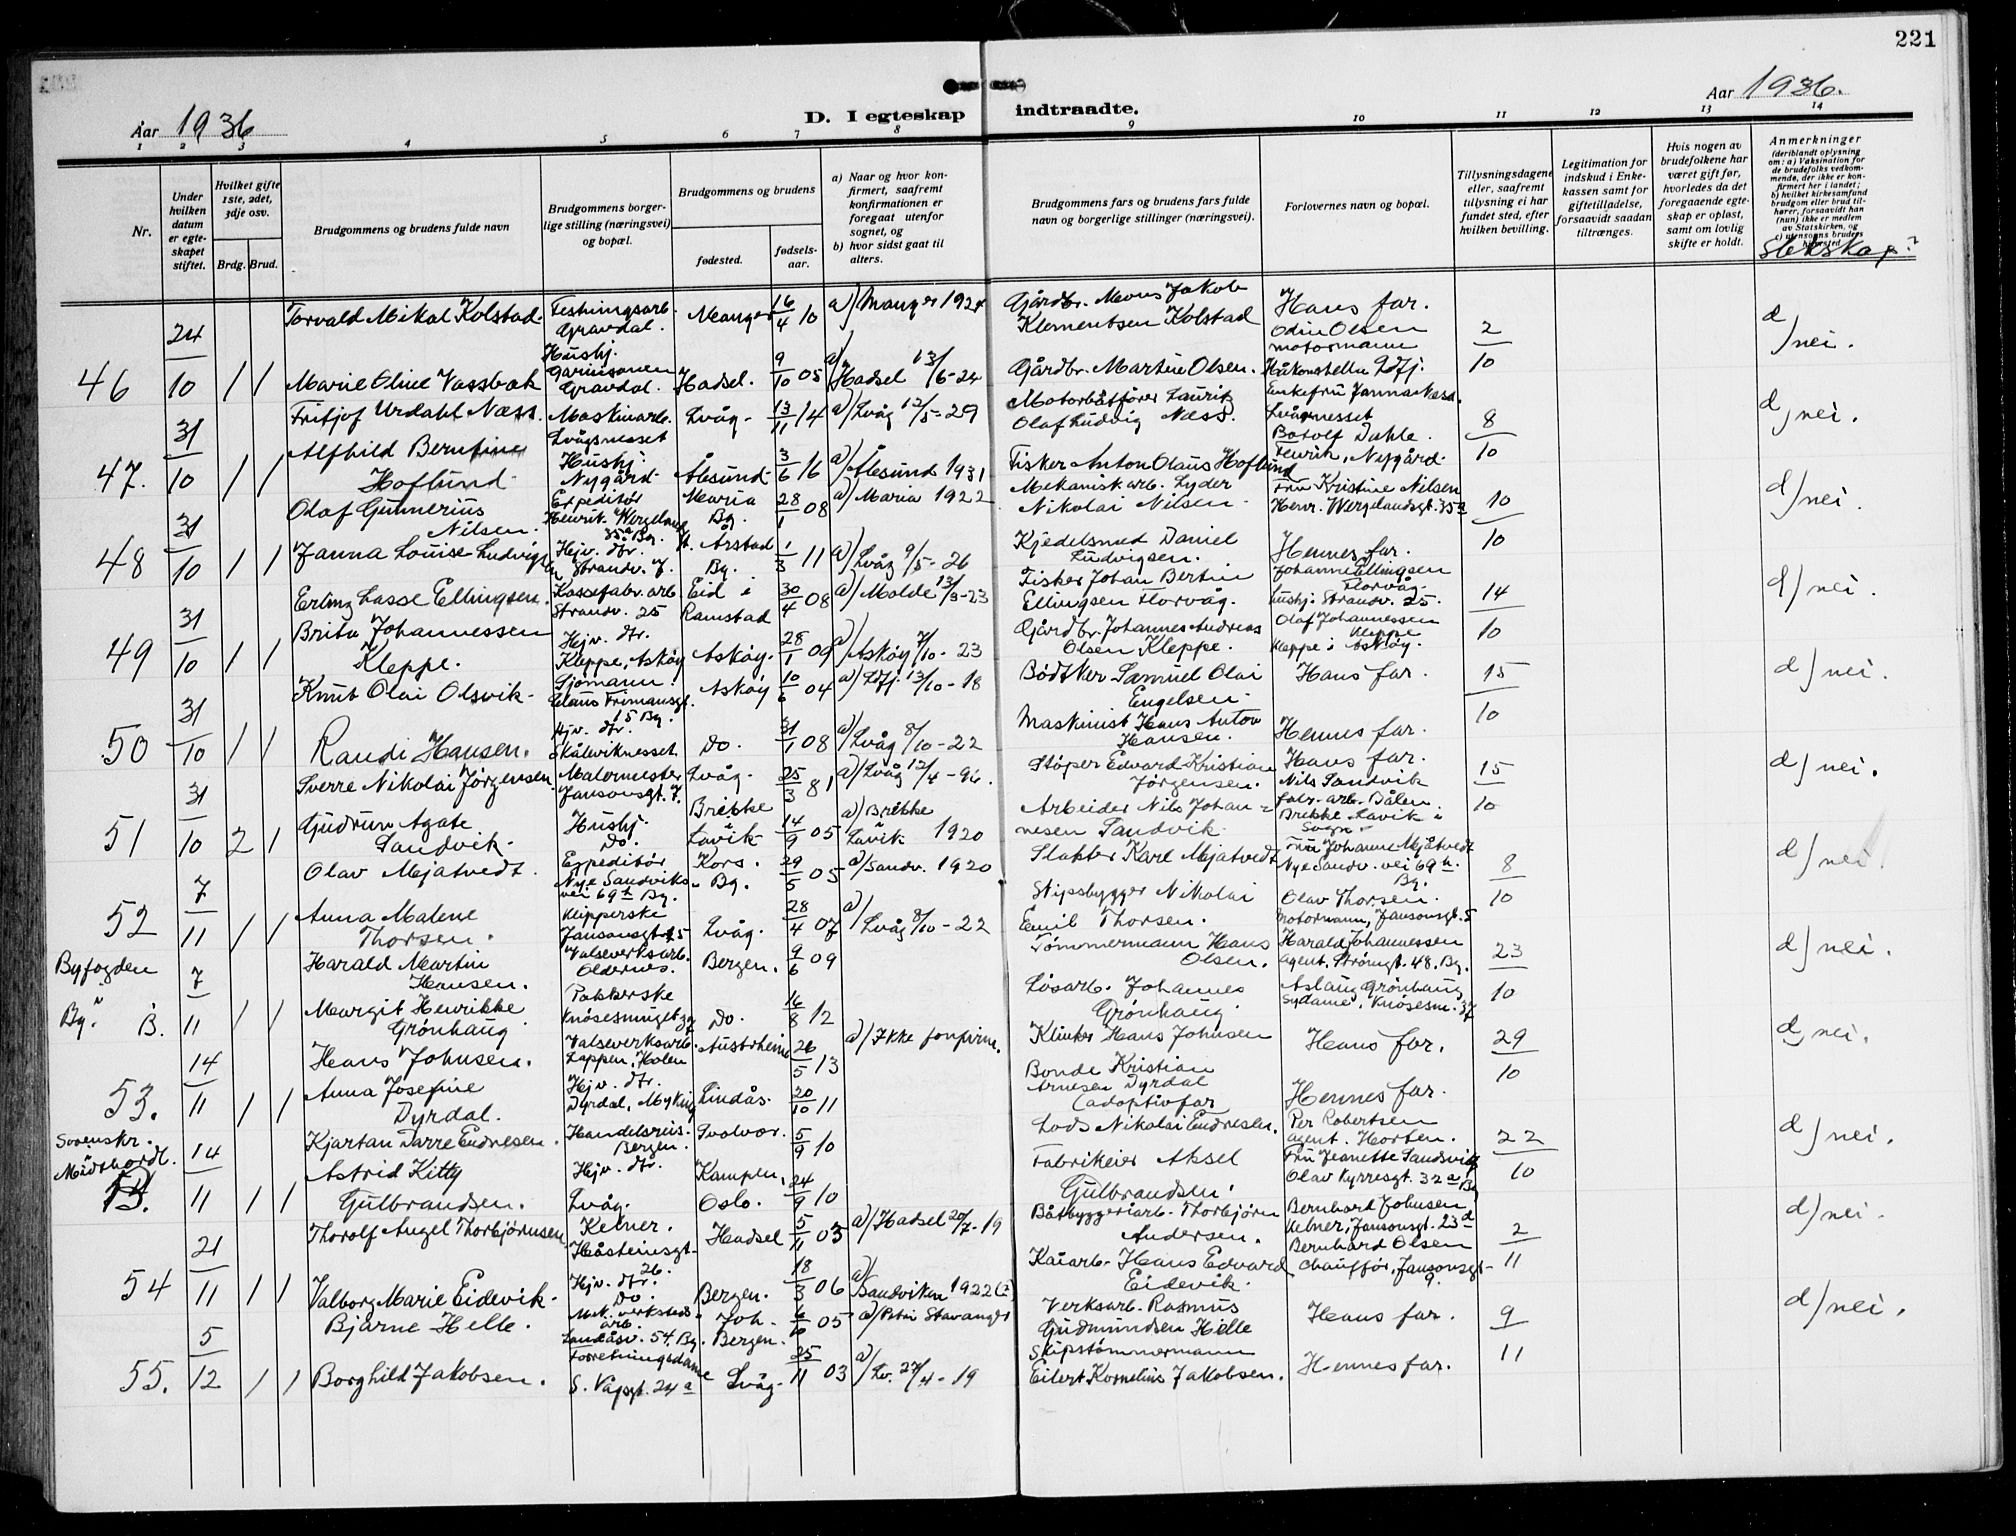 221
Aar 1936
D. I egteskap indtraadte.
Aar 1936.
1 2 3 4 5 6 7 8 9 10 11 12 13 14
Nr.
Under hvilken datum er egteskapet stiftet.
Hvilket gifte 1ste, 2det, 3dje osv.
Brdg. Brud.
Brudgommens og brudens fulde navn
Brudgommens borgerlige stilling (næringsvei) og bopæl.
Brudgommens og brudens
fødested.
fødselsaar.
a) Naar og hvor konfirmert, saafremt konfirmationen er foregaat utenfor sognet, og
b) hvor sidst gaat til alters.
Brudgommens fars og brudens fars fulde navn og borgerlige stillinger (næringsvei).
Forlovernes navn og bopæl.
Tillysningsdagene eller, saafremt tillysning ei har fundet sted, efter hvilken bevilling.
Legitimation for indskud i Enkekassen samt for giftetilladelse, forsaavidt saadan tiltrænges.
Hvis nogen av brudefolkene har været gift før, hvorledes da det foregaaende egteskap er opløst, samt om lovlig skifte er holdt.
Anmerkninger
(deriblandt oplysning om: a) Vaksination for de brudefolks vedkommende, der ikke er konfirmert her i landet; b) hvilket kirkesamfund brudgom eller brud tilhører, forsaavidt han (hun) ikke er medlem av Statskirken, og c) utensogns bruders hjemsted
Slektskap?
46 24/10 1 1
Torvald Mikal Kolstad. Festningsarb. Gravdal. Manger 16/4 10 a) Manger 1924 Gårdbr. Mons Jakob Klementsen Kolstad Hans far. Odin Olsen motormann 2/10 d) nei.
Marie Oline Vassbak Hushj. Garnisonen Gravdal. Hadsel. 9/10 05 a) Hadsel 13/6-24 Gårdbr. Martin Olsen. Håkonshella Ldfj.
47. 31/10 1 1
Fritjof Urdahl Næss. Maskinarb. Lvågsnesset Lvåg. 13/11 14 a) Lvåg 12/5-29 Motorbåtfører Lauritz Olaf Ludvig Næss. Enkefru Janna Næss. Lvågsnesset 8/10 d) nei.
Alfhild Berntine Hoflund. Hushj. Nygård. Ålesund 3/6 16 a) Ålesund 1931 Fisker Anton Olaus Hoflund Botolf Dahle. Nygård.
48 31/10 1 1
Olaf Gunnerius Nilsen. Expeditør Henrik Wergelandsgt. 35a Bg. Maria Bg. 28/1 08 a) Maria 1922 Mekanisk arb. Lyder Nikolai Nilsen Fru Kristine Nilsen Henr. Wergelandsgt. 35a 10/10 d) nei.
Janna Louise Ludvigsen Hjv. dtr. Strandv. 7. Årstad Bg. 1/3 11 a) Lvåg 9/5-26 Kjedelsmed Daniel Ludvigsen. Hennes far.
49 31/10 1 1
Erling Lasse Ellingsen. Kassefabr. arb. Strandv. 25 Eid i Ramstad 30/4 08 a) Molde 13/3-23 Fisker Johan Bertin Ellingsen Florvåg. Johanne Ellingsen Florvåg hushj. Strandv. 25. 14/10 d) nei.
Brita Johannessen Kleppe. Hjv. dtr. Kleppe, Askøy Askøy. 28/1 09 a) Askøy 7/10-23 Gårdbr. Johannes Andreas Olsen Kleppe. Olaf Johannessen Kleppe Kleppe i Askøy.
50 31/10 1 1
Knut Olai Olsvik. Sjømann. Claus Frimansgt. 15 Bg. Askøy 10/6 04 a) Ldfj 13/10-18 Bødtker Samuel Olai Engelsen Hans far. 15/10 d) nei.
Randi Hansen. Hjv. dtr. Skålevik­nesset Do. 31/1 08 a) Lvåg 8/10-22 Maskinist Hans Anton Hansen. Hennes far.
51 31/10 2 1
Sverre Nikolai Jørgensen Malermester Jansonsgt. 7. Lvåg. 25/3 81 a) Lvåg 12/4-96. Støper Edvard Kristian Jørgensen. Hans far. 15/10 d) nei.
Gudrun Agate Sandvik. Hushj. Do. Brekke i Lavik 14/9 05 a) Brekke Lavik 1920 Arbeider Nils Johannesen Sandvik. Nils Sandvik fabr. arb. Dålen. Brekke Lavik i Sogn.
52 7/11 1 1
Olav Mjatvedt. Expeditør Nye Sandviksvei 69 b Bg. Kors. Bg. 29/5 05 a) Sandv. 1920 Slakter Karl Mjatvedt Fru Johanne Mjåtvedt Nye Sandv. vei 69 b. Bg. 8/10 d) nei.
Anna Malene Thorsen. Klipperske Jansonsgt 25 Lvåg. 28/4 07 a) Lvåg 8/10-22 Skipsbygger Nikolai Emil Thorsen. Olav Thorsen. Motormann, Jansonsgt. 5
Byfogden Bg. B. 7/11 1 1
Harald Martin Hansen. Valseverksarb. Oldernes. Bergen. 9/6 09 Tømmermann Hans Olsen. Harald Johannessen agent. Strømgt. 48. Bg. 23/10 d) nei.
Margit Henrikke Grønhaug Pakkerske Knøsesmuget 37 Do. 16/8 12 Løsarb. Johannes Grønhaug. Aslaug Grønhaug Sydame, Knøsesm. 37
53. 14/11 1 1
Hans Johnsen. Valseverksarb. Lappen, Holen Austrheim 26/5 13 a) Ikke konfirm. Klinker Hans Johnsen Hans far. 29/10 d) nei.
Anna Josefine Dyrdal. Hjv. dtr. Dyrdal, Myking Lindås. 20/10 11 Bonde Kristian Arnesen Dyrdal (adoptivfar Hennes far.
Sorenskr. Midthordl. B. 14/11 1 1
Kjartan Darre Endresen. Handelsreis. Bergen. Svolvær. 5/9 10 Lods Nikolai Endresen. Per Robertsen agent. Horten. 22/10 d) nei.
Astrid Kitty Gulbrandsen. Hjv. dtr. Lvåg. Kampen, Oslo. 24/9 10 Fabrikeier Aksel Gulbrandsen. Fru Jeanette Sandsvig Olav Kyrresgt. 32a Bg
54 21/11 1 1
Thorolf Angel Thorbjørnsen Kelner. Håsteinsgt. 26. Hadsel 5/11 03 a) Hadsel 20/7-19 Båtbyggeriarb. Thorbjørn Andersen. Bernhard Johnsen Kelner, Jansonsgt. 23d 2/11 d) nei.
Valborg Marie Eidevik. Hjv. dtr. Do. Bergen. 18/3 06 a) Sandviken 1922 (?) Kaiarb. Hans Edvard Eidevik. Bernhard Olsen Chauffør, Jansonsgt. 9.
55. 5/12 1 1
Bjarne Helle. Mek. verkstedsarb. Landåsv. 54. Bg. Joh. Bergen. 6/6 05 a) Petri Stavanger Verksarb. Rasmus Gudmundsen Helle Hans far. 9/11 d) nei.
Borghild Jakobsen. Forretningsdame S. Vågsgt. 24a Lvåg. 25/11 03 a) Lv. 27/4-19 Skipstømmermann Eilert Kornelius Jakobsen. Hennes far.